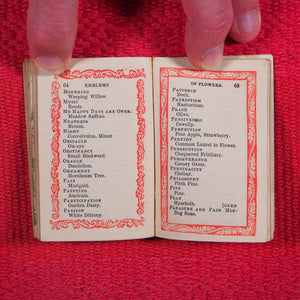 64 EMBLEMS
MOURNING
Weeping Willow.
MUSIC
Reeds.
MY HAPPY DAYS ARE OVER.
Meadow Saffron.
NEATNESS
Broom.
NIGHT
Convolvulus, Minor
OBSTACLE
Ox-eye
OBSTINANCE
Small Bindweed.
ORACLE
Dandelion.
ORNAMENT
Hornbeam Tree.
PAIN
Marigold.
PAINTING
Auricula.
PARTICIPATION
Garden Daisy.
PASSION
White Dittany.
OF FLOWERS. 65
PATIENCE
Dock.
PATRIOTISM
Nasturtium.
PEACE
Olive.
PENSIVENESS
Cowslip.
PERFECTION
Pine Apple, Strawberry.
PERFIDY
Common Laurel in Flower.
PERSECUTION
Chequered Fritillary.
PERSEVERANCE
Canary Grass.
PERTINACITY
Clotbur.
PHILOSOPHY
Pitch Pine.
PITY
Pine.
PLAY
Hyacinth. [GLED
PLEASURE AND PAIN MIN-
Dog Rose.